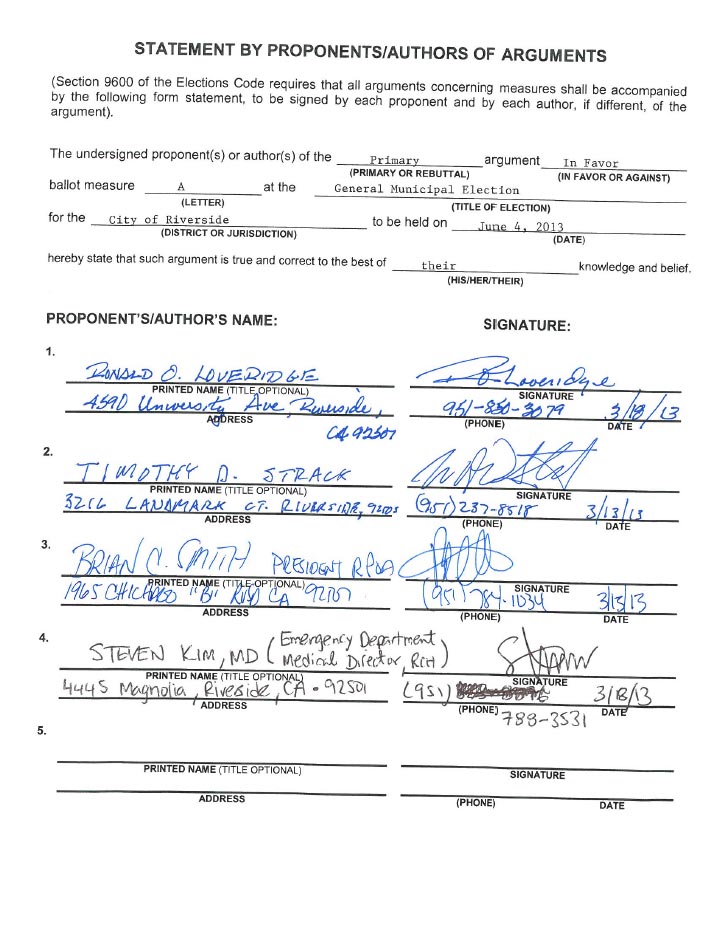 STATEMENT BY PROPONENTS/AUTHORS OF ARGUMENTS
(Section 9600 of the Elections Code requires that all arguments concerning measures shall be accompanied
by the following form statement, to be signed by each proponent and by each author, if different, of the
argument).
The undersigned proponent(s) or author(s) of the Primary argument In Favor
(PRIMARY OR REBUTTAL) (IN FAVOR OR AGAINST)
ballot measure A at the General Municipal Election
(LETTER) (TITLE OF ELECTION)
for the City of Riverside to be held on June 4, 2013
(DISTRICT OR JURISDICTION) (DATE)
hereby state that such argument is true and correct to the best of their knowledge and belief.
(HIS/HER/THEIR)
PROPONENT'S/AUTHOR'S NAME: SIGNATURE:
1.
RONALD O. LOVERIDGE R O Loveridge
PRINTED NAME (TITLE OPTIONAL) SIGNATURE
4590 University Ave, Riverside, 951-850-3079 3/18/13
ADDRESS (PHONE) DATE
CA 92507
2.
TIMOTHY D. STRACK
PRINTED NAME (TITLE OPTIONAL) SIGNATURE
3216 LANDMARK CT. RIVERSIDE, (951)237-8518 3/13/13
ADDRESS (PHONE) DATE
3.
BRIAN C. SMITH PRESIDENT RPOA
PRINTED NAME (TITLE OPTIONAL) SIGNATURE
1965 CHICAGO "B" CA (951) 784-1034 3/13/13
ADDRESS (PHONE) DATE
4.
STEVEN KIM, MD (Emergency Department
Medical Director, RCH)
PRINTED NAME (TITLE OPTIONAL) SIGNATURE
4445 Magnolia, Riveside, CA - 92501 (951) 3/18/13
ADDRESS (PHONE) DATE
788-3531
5.
PRINTED NAME (TITLE OPTIONAL) SIGNATURE
ADDRESS (PHONE) DATE